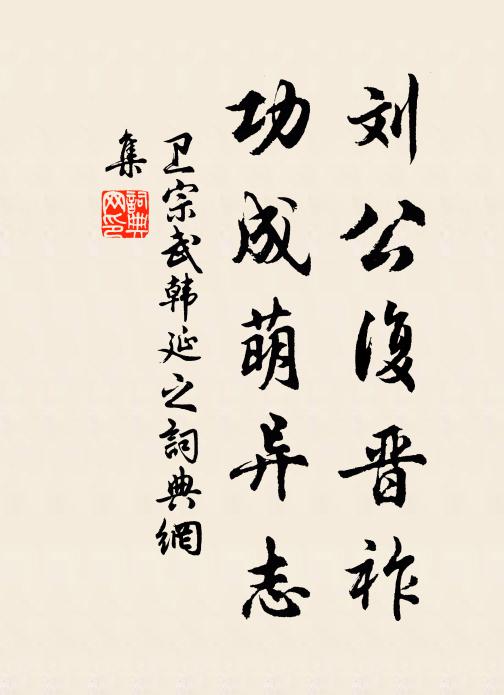 刘公復晋祚
功成萌异志
卫宗武韩延之詞典網
集
詞典網印